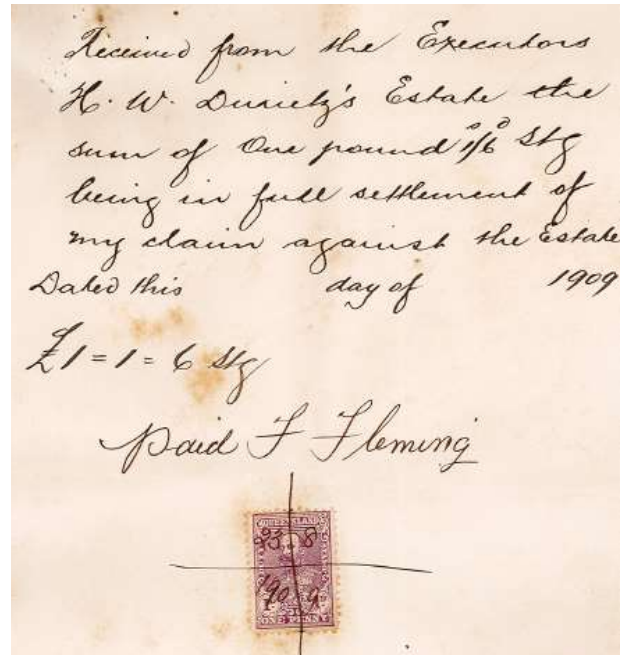 Received from the Executors
H. W. Durietz's Estate the
sum of One pound 1/6 Stg
being in full settlement of
my claim against the Estate
Dated this day of 1909
£1 = 1 = 6 Stg
Paid F Fleming
QUEENSLAND
23. 8
1909
ONE PENNY